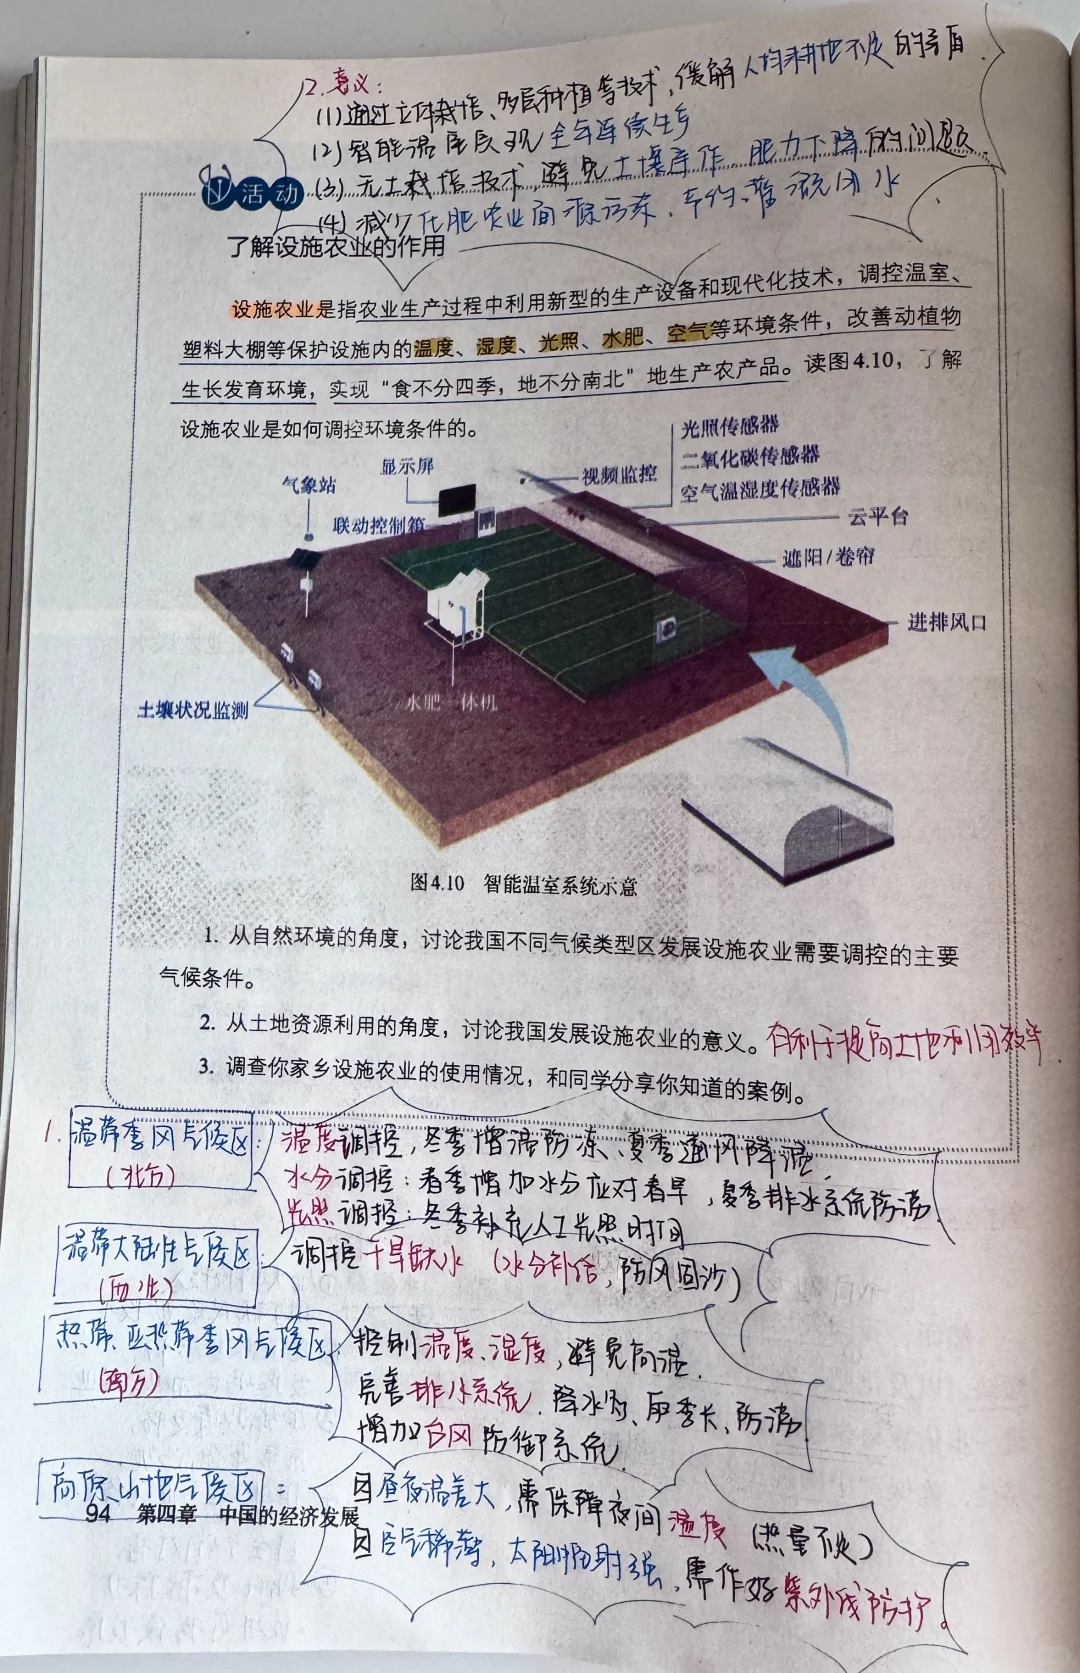 2.意义:
(1)通过立体栽培、多层种植等技术,缓解人均耕地不足的矛盾.
(2)智能温室实现全年连续生产
(3)无土栽培技术,避免土壤 肥力下降的问题.
(4)减少化肥农业面源污染,节约灌溉用水
活动
了解设施农业的作用
设施农业是指农业生产过程中利用新型的生产设备和现代化技术，调控温室、
塑料大棚等保护设施内的温度、湿度、光照、水肥、空气等环境条件，改善动植物
生长发育环境，实现“食不分四季，地不分南北”地生产农产品。读图4.10，了解
设施农业是如何调控环境条件的。
光照传感器
显示屏
二氧化碳传感器
气象站
视频监控
空气温湿度传感器
联动控制箱
云平台
遮阳/卷帘
进排风口
水肥一体机
土壤状况监测
图4.10 智能温室系统示意
1. 从自然环境的角度，讨论我国不同气候类型区发展设施农业需要调控的主要
气候条件。
2. 从土地资源利用的角度，讨论我国发展设施农业的意义。有利于提高土地利用效率
3. 调查你家乡设施农业的使用情况，和同学分享你知道的案例。
1.温带季风气候区:
(北方)
温度调控,冬季增温防冻、夏季通风降温
水分调控:春季增加水分应对春旱,夏季排水系统防涝.
光照调控:冬季补充人工光照时间
温带大陆性气候区:
(西北)
调控干旱缺水 (水分补给,防风固沙)
热带、亚热带季风气候区:
(南方)
控制温度、湿度,避免高温.
完善排水系统.降水多、雨季长、防涝
增加台风防御系统.
高原山地气候区:
因昼夜温差大,需保障夜间温度 (热量不足)
因空气稀薄,太阳辐射强,需作好紫外线防护。
94 第四章 中国的经济发展